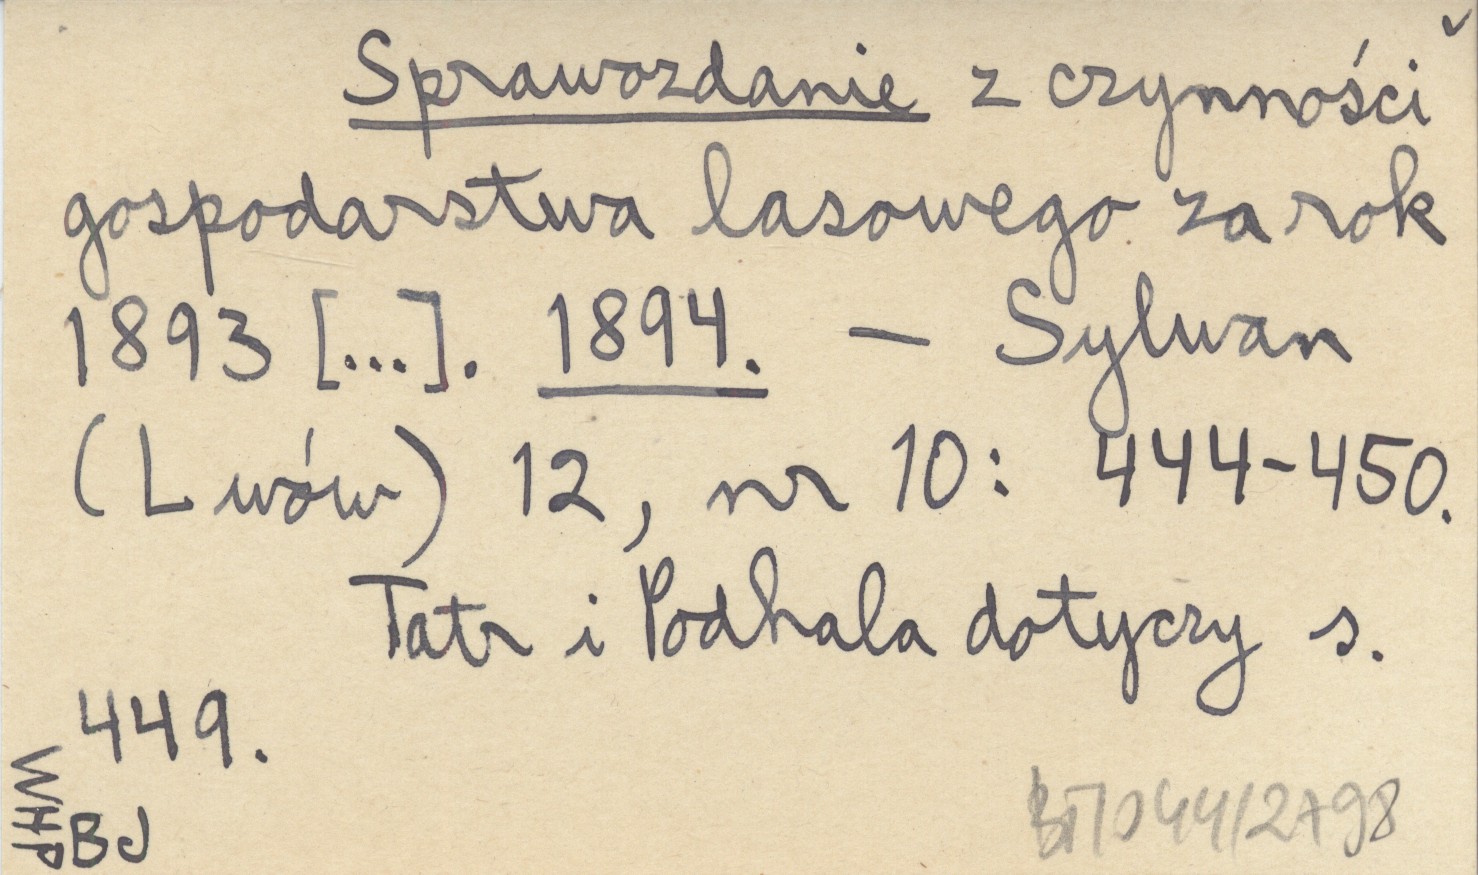 Sprawozdanie z czynności
gospodarstwa lasowego za rok
1893 [...]. 1894. — Sylwan
(Lwów) 12, nr 10: 444-450.
Tatr i Podhala dotyczy s.
449.
WHP
BJ